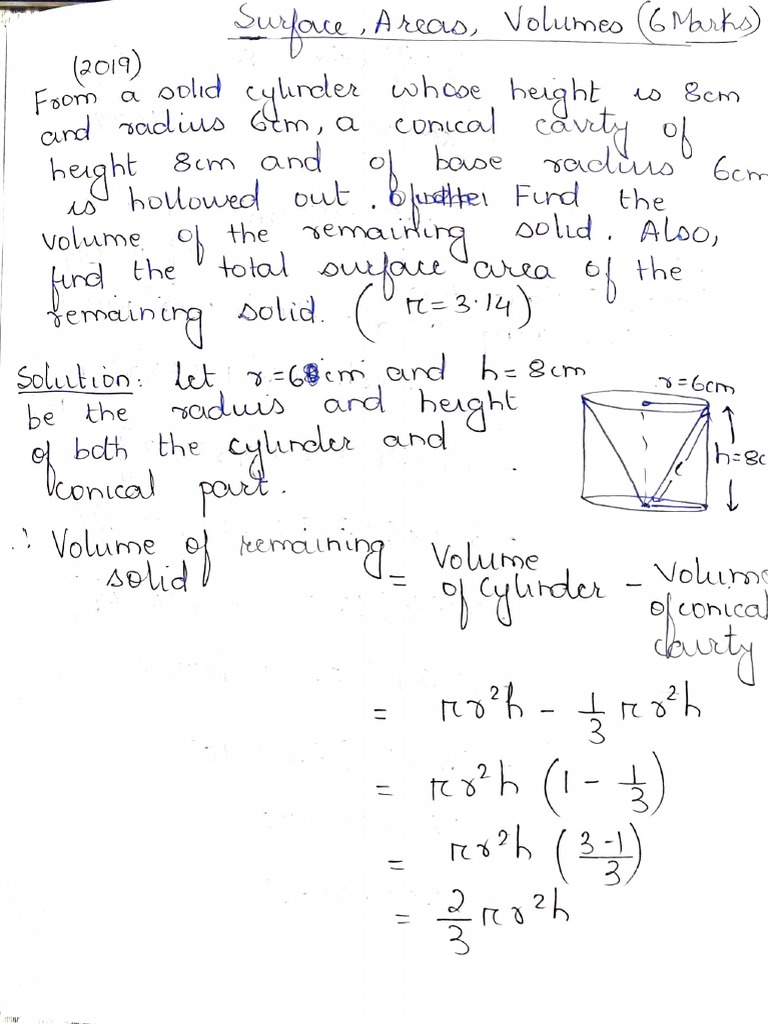 Surface, Areas, Volumes (6 Marks)
(2019)
From a solid cylinder whose height is 8cm
and radius 6cm, a conical cavity of
height 8cm and of base radius 6cm
is hollowed out. Find the
volume of the remaining solid. Also,
find the total surface area of the
remaining solid. (π = 3.14)
Solution: let r = 6cm and h = 8cm
be the radius and height
of both the cylinder and
conical part.
r = 6cm
h = 8c
l
∴ Volume of remaining solid = Volume of cylinder - Volume of conical cavity
= πr²h - 1/3 πr²h
= πr²h (1 - 1/3)
= πr²h (3-1/3)
= 2/3 πr²h